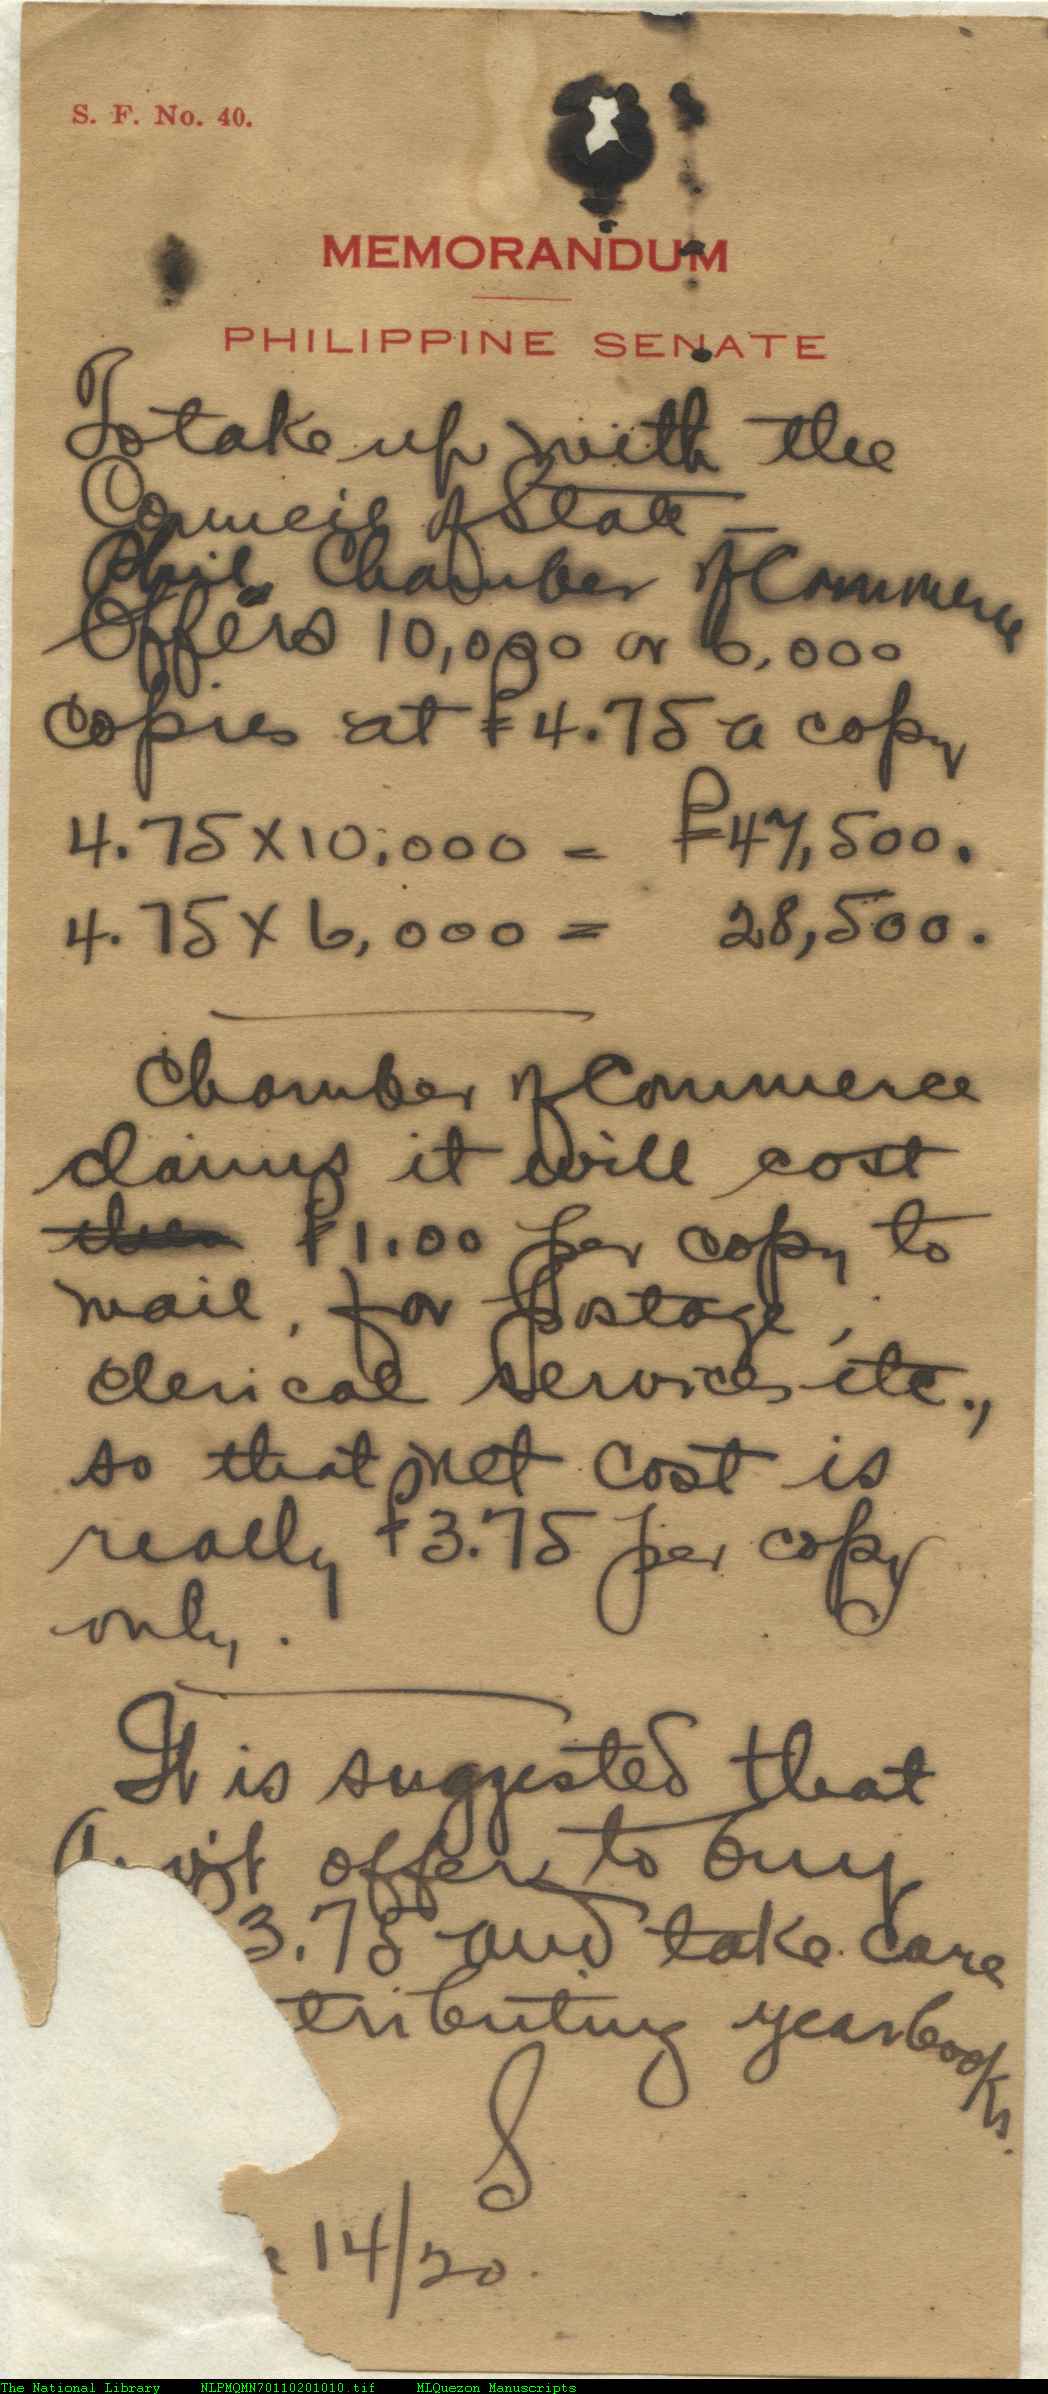 S. F. No. 40.
MEMORANDUM
PHILIPPINE SENATE
To take up with the
Council of State —
Phil. Chamber of Commerce
Offers 10,000 or 6,000
copies at ₱4.75 a copy
4.75 X 10,000 = ₱47,500.
4.75 X 6,000 = 28,500.
Chamber of Commerce
claims it will cost
them ₱1.00 per copy to
mail, for postage,
clerical services etc.,
so that net cost is
really ₱3.75 per copy
only.
It is suggested that
Gov't offer to buy
3.75 and take care
tributing yearbooks.
14/20.
The National Library NLPMQMN70110201010.tif MLQuezon Manuscripts